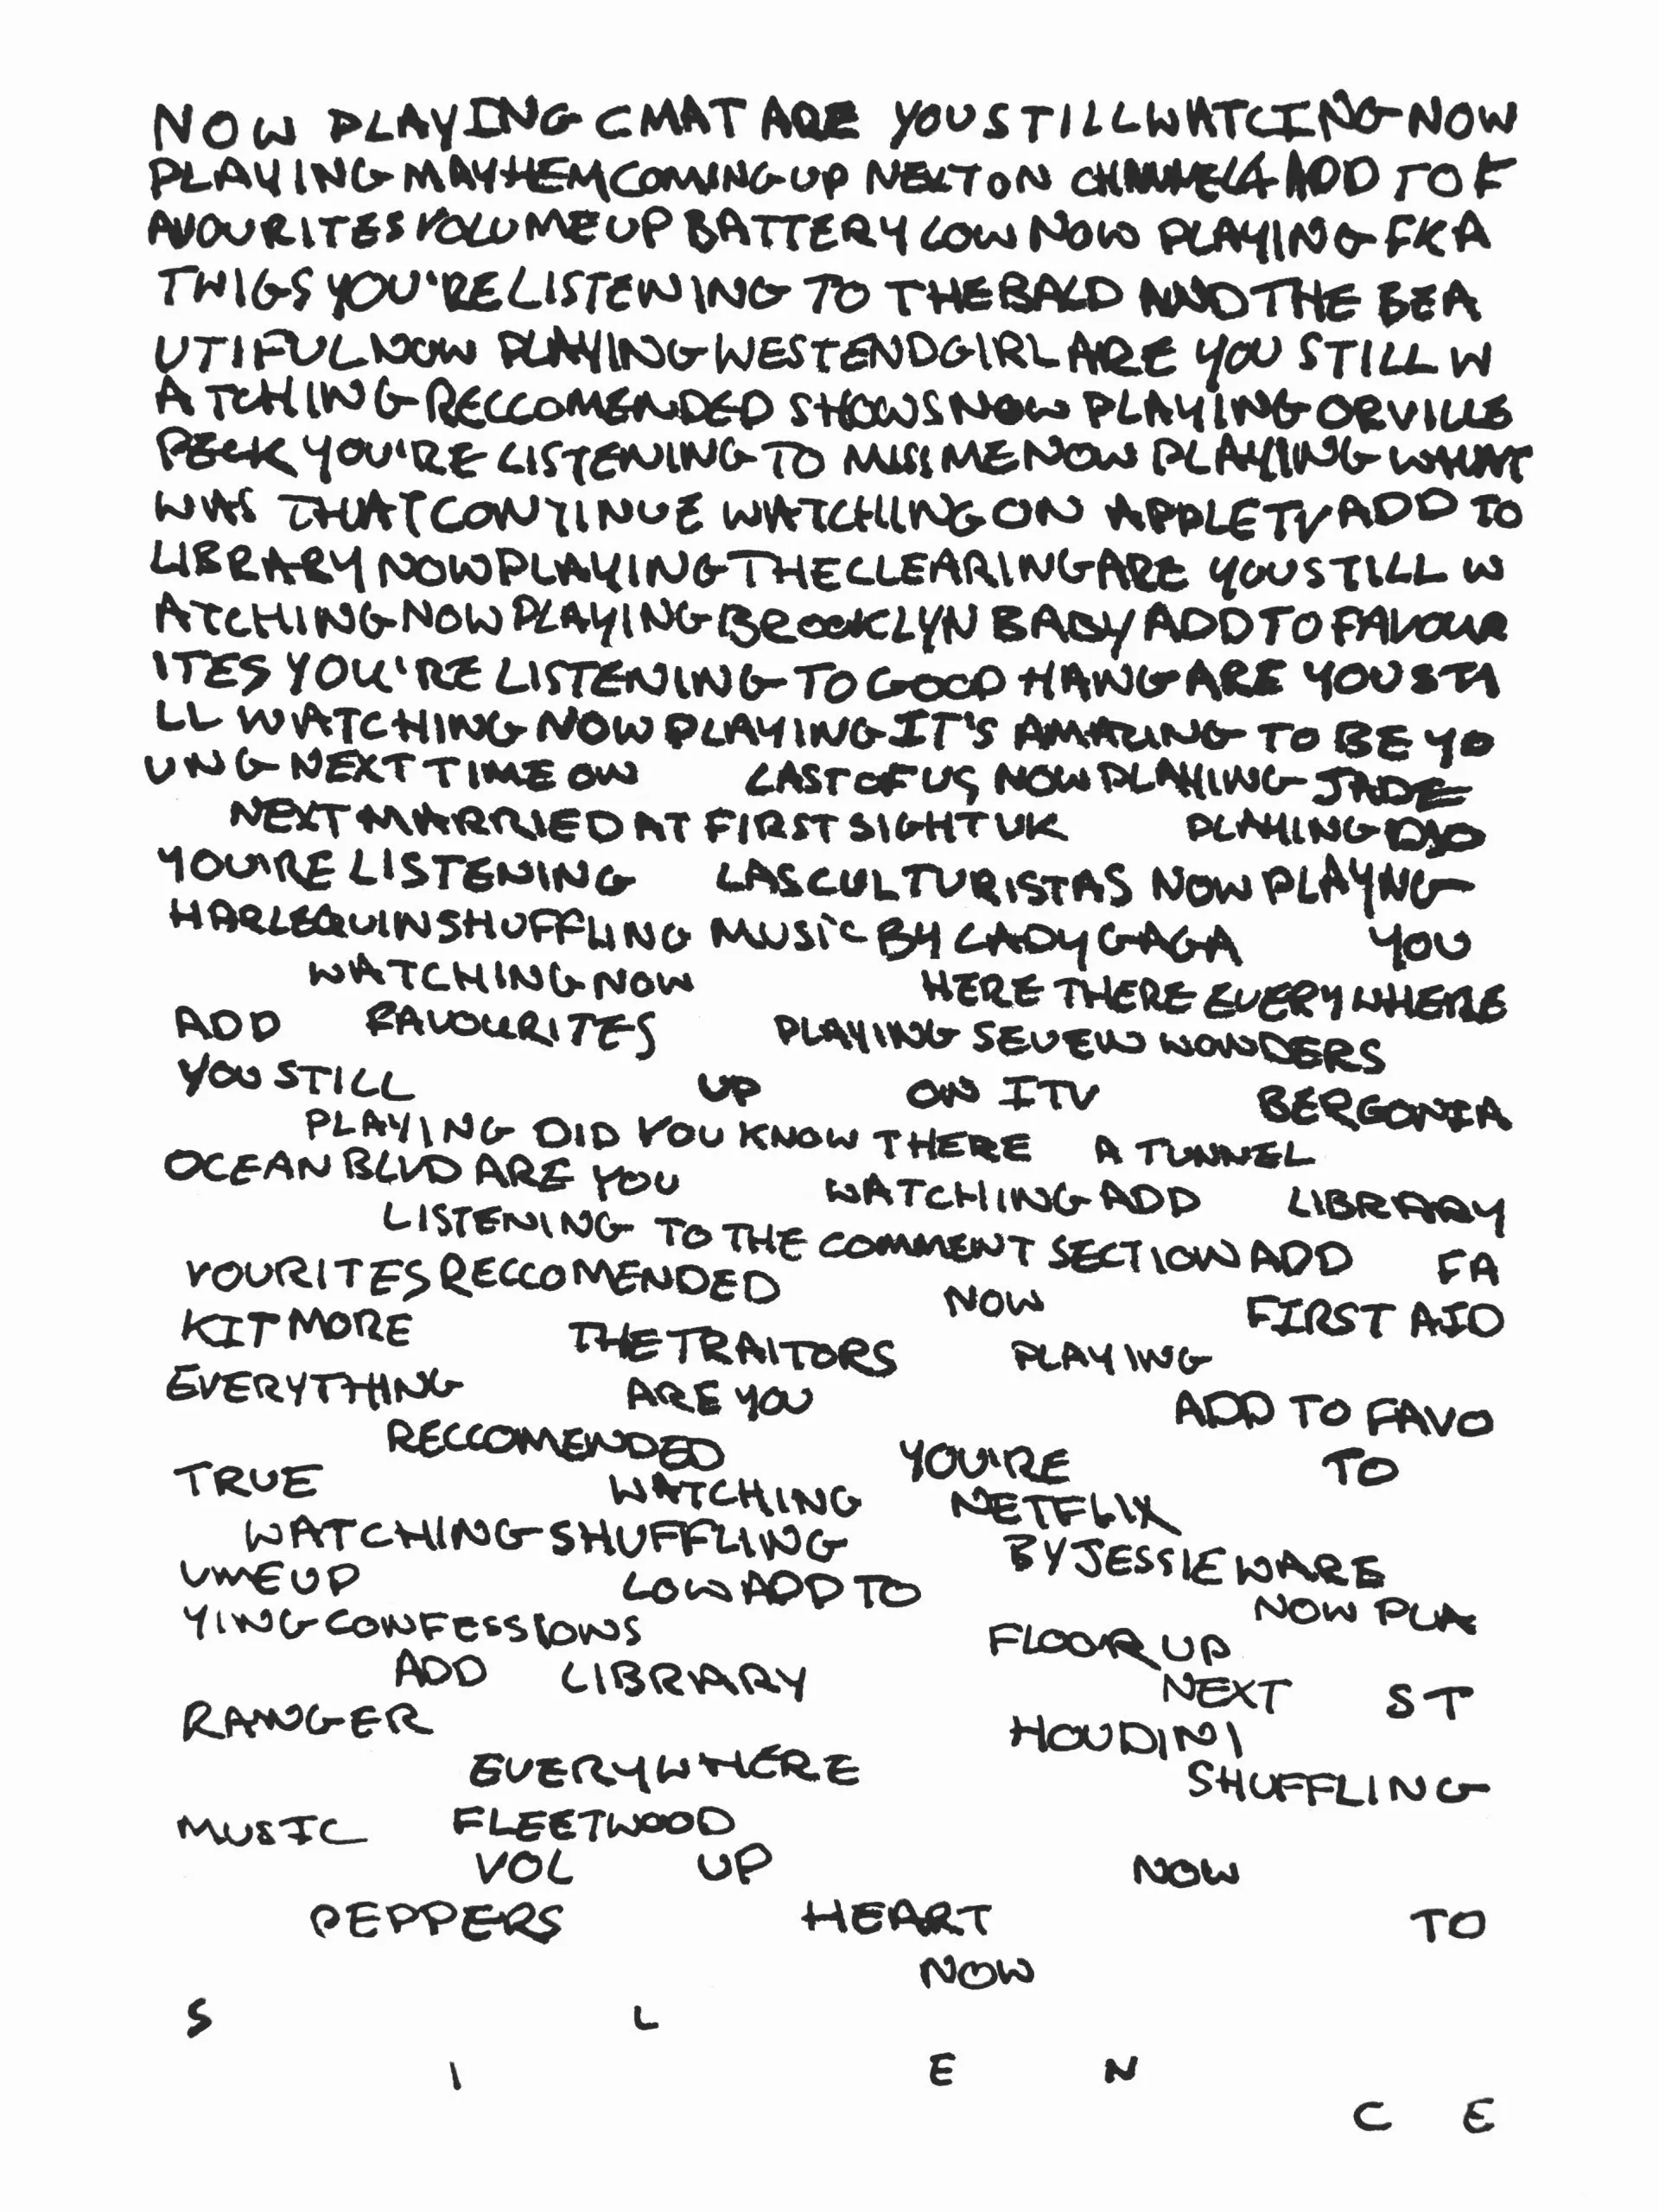 NOW PLAYING CMAT ARE YOUSTILLWATCING NOW
PLAYING MAYHEMCOMING UP NEXT ON CHANNEL4 ADD TO F
AVOURITES VOLUMEUP BATTERY LOW NOW PLAYING FKA
TWIGS YOU'RE LISTENING TO THE BALD AND THE BEA
UTIFUL NOW PLAYING WESTENDGIRL ARE YOU STILL W
ATCHING RECCOMENDED SHOWS NOW PLAYING ORVILLE
PECK YOU'RE LISTENING TO MISS ME NOW PLAYING WHAT
WAS THAT CONTINUE WATCHING ON APPLETV ADD TO
LIBRARY NOWPLAYING THECLEARING ARE YOUSTILL W
ATCHING NOW PLAYING BROOKLYN BABY ADD TO FAVOUR
ITES YOU'RE LISTENING TO GOOD HANG ARE YOU STI
LL WATCHING NOW PLAYING IT'S AMAZING TO BE YO
UNG NEXT TIME ON LAST OF US NOW PLAYING JADE
NEXT MARRIED AT FIRST SIGHT UK PLAYING
YOU'RE LISTENING LASCULTURISTAS NOW PLAYNG
HARLEQUIN SHUFFLING MUSIC BY LADY GAGA YOU
WATCHING NOW HERE THERE EVERYWHERE
ADD FAVOURITES PLAYING SEVEN WONDERS
YOU STILL UP ON ITV BERGONIA
PLAYING DID YOU KNOW THERE A TUNNEL
OCEAN BLVD ARE YOU WATCHING ADD LIBRARY
LISTENING TO THE COMMENT SECTION ADD FA
VOURITES RECCOMENDED NOW FIRST AID
KIT MORE THE TRAITORS PLAYING
EVERYTHING ARE YOU ADD TO FAVO
RECCOMENDED YOU'RE TO
TRUE WATCHING NETFLIX
WATCHING SHUFFLING BY JESSIE WARE
UME UP LOW ADD TO NOW PLA
YING CONFESSIONS FLOOR UP
ADD LIBRARY NEXT ST
RANGER HOUDINI
EVERYWHERE SHUFFLING
MUSIC FLEETWOOD
VOL UP NOW
PEPPERS HEART TO
NOW
S L
I E N
C E